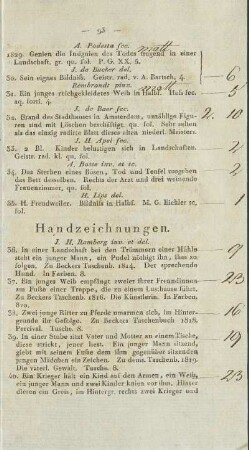 — 93 —
A. Podesta fec.
1829. Genien die Insignien des Todes tragend in einer
Landschaft, gr. qu. fol. P. G. XX. 4.
J. de Bacher del.
30. Sein eignes Bildniß. Geistr. rad. v. A. Bartsch, 4 6
Rembrandt pinx.
31. Ein junges reichgekleidetes Weib in Halbf. Haß fec.
aq. fort. 4. 5
J. de Baer fec.
32. Brand des Stadthauses in Amsterdam, unzählige Figu-
ren sind mit Löschen beschäftigt. qu. fol. Sehr selten 2. 10
das das einzig radirte Blatt dieses alten niederl. Meisters.
J. H. Apel fec.
33. 2 Bl. Kinder belustigen sich in Landschaften. 2
Geistr. rad. kl. qu. fol.
A. Basse inv. et sc.
34. Das Sterben eines Bösen, Tod und Teufel umgeben
das Bett desselben. Rechts der Arzt und drei weinende
Frauenzimmer, qu. fol. 2
H. Lips del.
35. H. Freudweiler. Bildniß in Halbf. M. G. Eichler sc.
fol. 1
Handzeichnungen.
J. H. Ramberg inv. et del.
36. In einer Landschaft bei den Trümmern einer Mühle
steht ein junger Mann, ein Pudel nöthigt ihn, ihm zu 9
folgen. Zu Beckers Taschenb. 1814. Der sprechende
Hund. In Farben. 8.
37. Ein junges Weib empfängt zweier ihrer Freundinnen
am Fuße einer Treppe, die zu einem Landhause führt. 23
Zu Beckers Taschenb. 1816. Die Künstlerin. In Far-
ben. 8.
38. Zwei junge Ritter zu Pferde umarmen sich, im Hinter-
grunde ihr Gefolge. Zu Beckers Taschenbuch 1818. 16
Percival. Tusche. 8.
39. In einer Stube sitzt Vater und Mutter an einem Tische,
diese strickt, jener liest. Ein junger Mann diesand,
giebt mit seinem Fuße dem ihm gegenüber sitzenden 19
jungen Mädchen ein Zeichen. Zu dems. Taschenb. 1819.
Die vaterl. Gewalt. Tusche. 8.
40. Ein Krieger hält ein Kind auf den Armen, ein Weib, 23
ein junger Mann und zwei Kinder knien vor ihm. Hinter
diesen ein Greis, im Hintergr. rechts zwei Krieger und